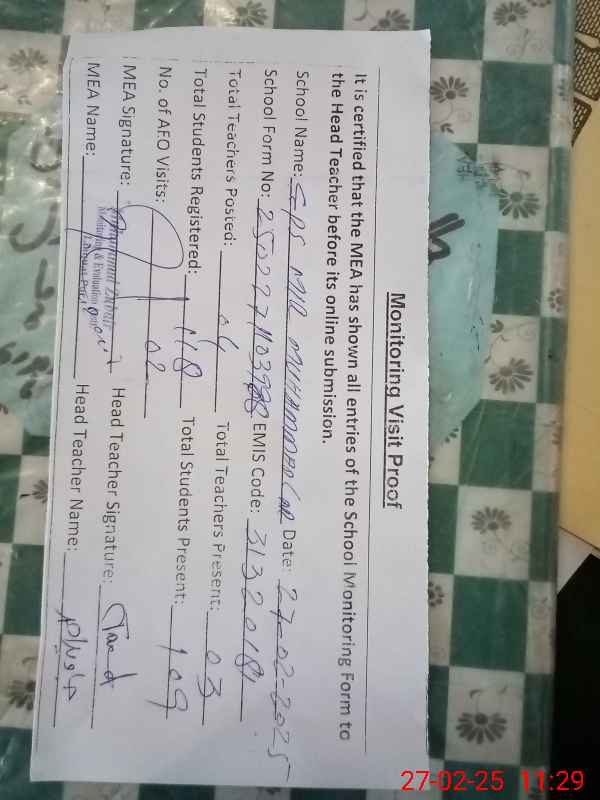 Monitoring Visit Proof
It is certified that the MEA has shown all entries of the School Monitoring Form to
the Head Teacher before its online submission.
School Name: GPS MIR MUHAMMAD Date: 27-02-2025
School Form No: EMIS Code: 31320181
Total Teachers Posted: 04 Total Teachers Present: 03
Total Students Registered: 118 Total Students Present: 109
No. of AEO Visits: 02
MEA Signature: Head Teacher Signature:
Monitoring & Evaluation
MEA Name: Head Teacher Name:
27-02-25 11:29